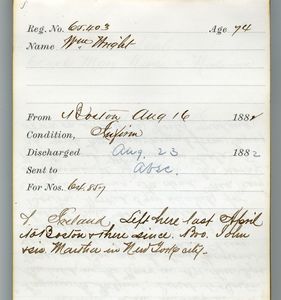 Reg. No. 65.403 Age 74
Name Wm Wright
From Boston Aug 16 1882
Condition, Infirm
Discharged Aug. 23 1882
Sent to absc.
For Nos. 64.857
Ireland, Left here last April
to Boston & there since. Bro. John
& sis Martha in New York city.